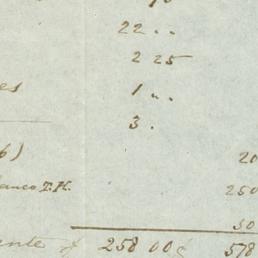 22 . .
2 25
es 1 " .
3 .
6) 20
anco T.H. 250
30
ente 258 00 578